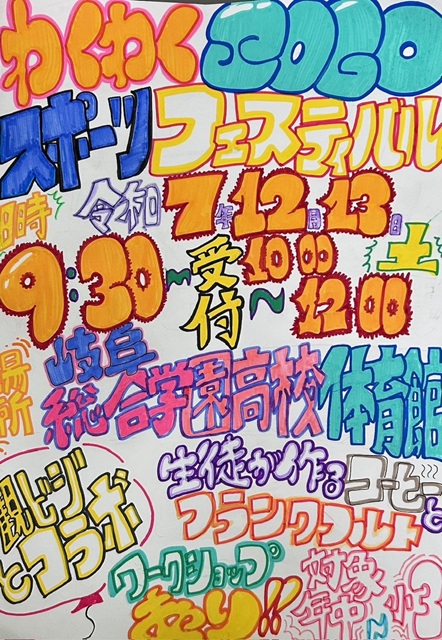 わくわく SOGO
スポーツフェスティバル
日時 令和7年12月13日
9:30~受付 10:00~12:00 土
場所 岐阜
総合学園高校体育館
観ビジとコラボ
生徒が作る コーヒー&
フランクフルト
ワークショップあり!!
対象 年中~小3